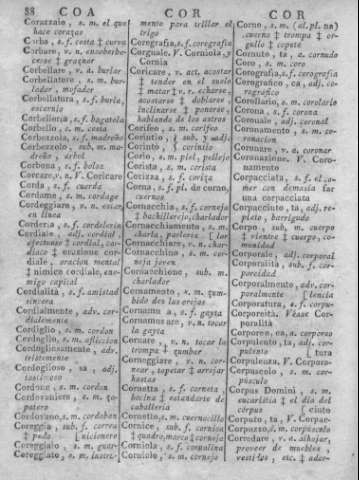 88 COA COR COR
Corazzaio, s. m. el que
hace corazas
Corba, s. f. cesta ‡ curva
Corbare, v. n. escoberbe-
Corbellare, v. a. burlar
Corbellatore, s. m. bur-
lador, mofador
Corbellatura, s. f. burla,
Corbelleria, s. f. bagatela
Corbello, s. m. cesta
Corbezzola, s. f. madroño
Corbezzolo, sub. m. ma-
droño, arbol
Corbona, s. f. bolsa
Corcare, v. n. V. Coricare
Corda, s. f. cuerda
Cordame, s. m. cordage
Cordeggiare, v. n. estar
en linea
Corderia, s. f. cordeleria
Cordiale, adj. cordial,
afectuoso ‡ cordial, cor-
diaco ‡ orazione cor-
diale, oracion mental
‡ nimico cordiale, ene-
migo capital
Cordialità, s. f. amistad
sincera
Cordialmente, adv. cor-
dialmente
Cordiglio, s. m. cordon
Cordoglio, s. m. afliccion
Cordogliosamente, adv.
tristemente
Cordoglioso, sa, adj.
lastimoso
Cordone, s. m. cordon
Cordovaniere, s. m. za-
patero
Cordovano, s. m. cordoban
Coreggia, sub. f. correa
‡ pedo
Coreggiaio, s. m. guar-
Coreggiato, s. m. instru-
mento para trillar el
trigo
Coregrafia, s. f. coregrafia
Corguale, V. Corniola, y
Cornia
Coricare, v. act. acostar
‡ tender en el suelo
‡ matar ‡ v. r. echarse,
acostarse ‡ doblarse ‡
inclinarse ‡ ponerse
hablando de los astros
Corifeo, s. m. corifeo
Corintio, } sub. y adj.
Corinto, } corintio
Corio, s. m. piel, pellejo
Corista, s. m. corista
Corizza, s. f. coriza
Corna, s. f. pl. de corno,
cuernos
Cornacchia, s. f. corneja
‡ bachillerejo, charlador
Cornacchiamento, s. m.
charla, parleria [lar
Cornacchiare, v. n. char-
Cornacchino, s. m. cor-
neja joven
Cornacchione, sub. m.
charlador
Cornamento, s. m. zum-
bido des las orejas
Cornamusa, s. f. gayta
Cornamusare, v. n. tocar
la gayta
Cornare, v. n. tocar la
trompa ‡ zumbar
Corneggiare, v. n. cor-
near, topetar ‡ arrojar
hastas
Cornetta, s. f. corneta,
bocina ‡ estandarte de
caballeria
Cornetto, s. m. cuernecillo
Cornice, sub. f. cornisa
‡ quadro, marco ‡ corneja
Corniola, s. f. cornalina
Corniolo, s. m. cornejo
Corno, s. m. (al. pl. na)
cuerno ‡ trompa ‡ or-
gullo ‡ copete
Cornuto, ta, a. cornudo
Coro, s. m. coro
Corografia, s. f. corografia
Corografico, ca, adj. co-
rografico
Corollario, s. m. corolario
Corona, s. f. corona
Coronale, adj. coronal
Coronamento, s. m. co-
ronacion
Coronare, v. a. coronar
Coronazione. V. Coro-
namento
Corpacciata, s. f. el co-
mer con demasia far
una corpacciata
Corpacciuto, ta, adj. re-
pleto, barrigudo
Corpo, sub. m. cuerpo
‡ vientre ‡ cuerpo, co-
munidad
Corporale, adj. corporal
Corporalità, sub. f. cor-
poreidad
Corporalmente, adv. cor-
poralmente [lencia
Corporatura, s. f. corpu-
Corporeità. Véase Cor-
poralità
Corporeo, ea, a. corporeo
Corpulento, ta, adj. cor-
pulento [tura
Corpulenza, V. Corpora-
Corpuscolo, s. m. cor-
púsculo
Corpus Domini, s. m.
eucaristia ‡ el dia del
córpus [ciuto
Corputo, ta, V. Corpac-
Corredare, v. a. alhajar,
proveer de muebles,
vestidos, etc. ‡ ade-